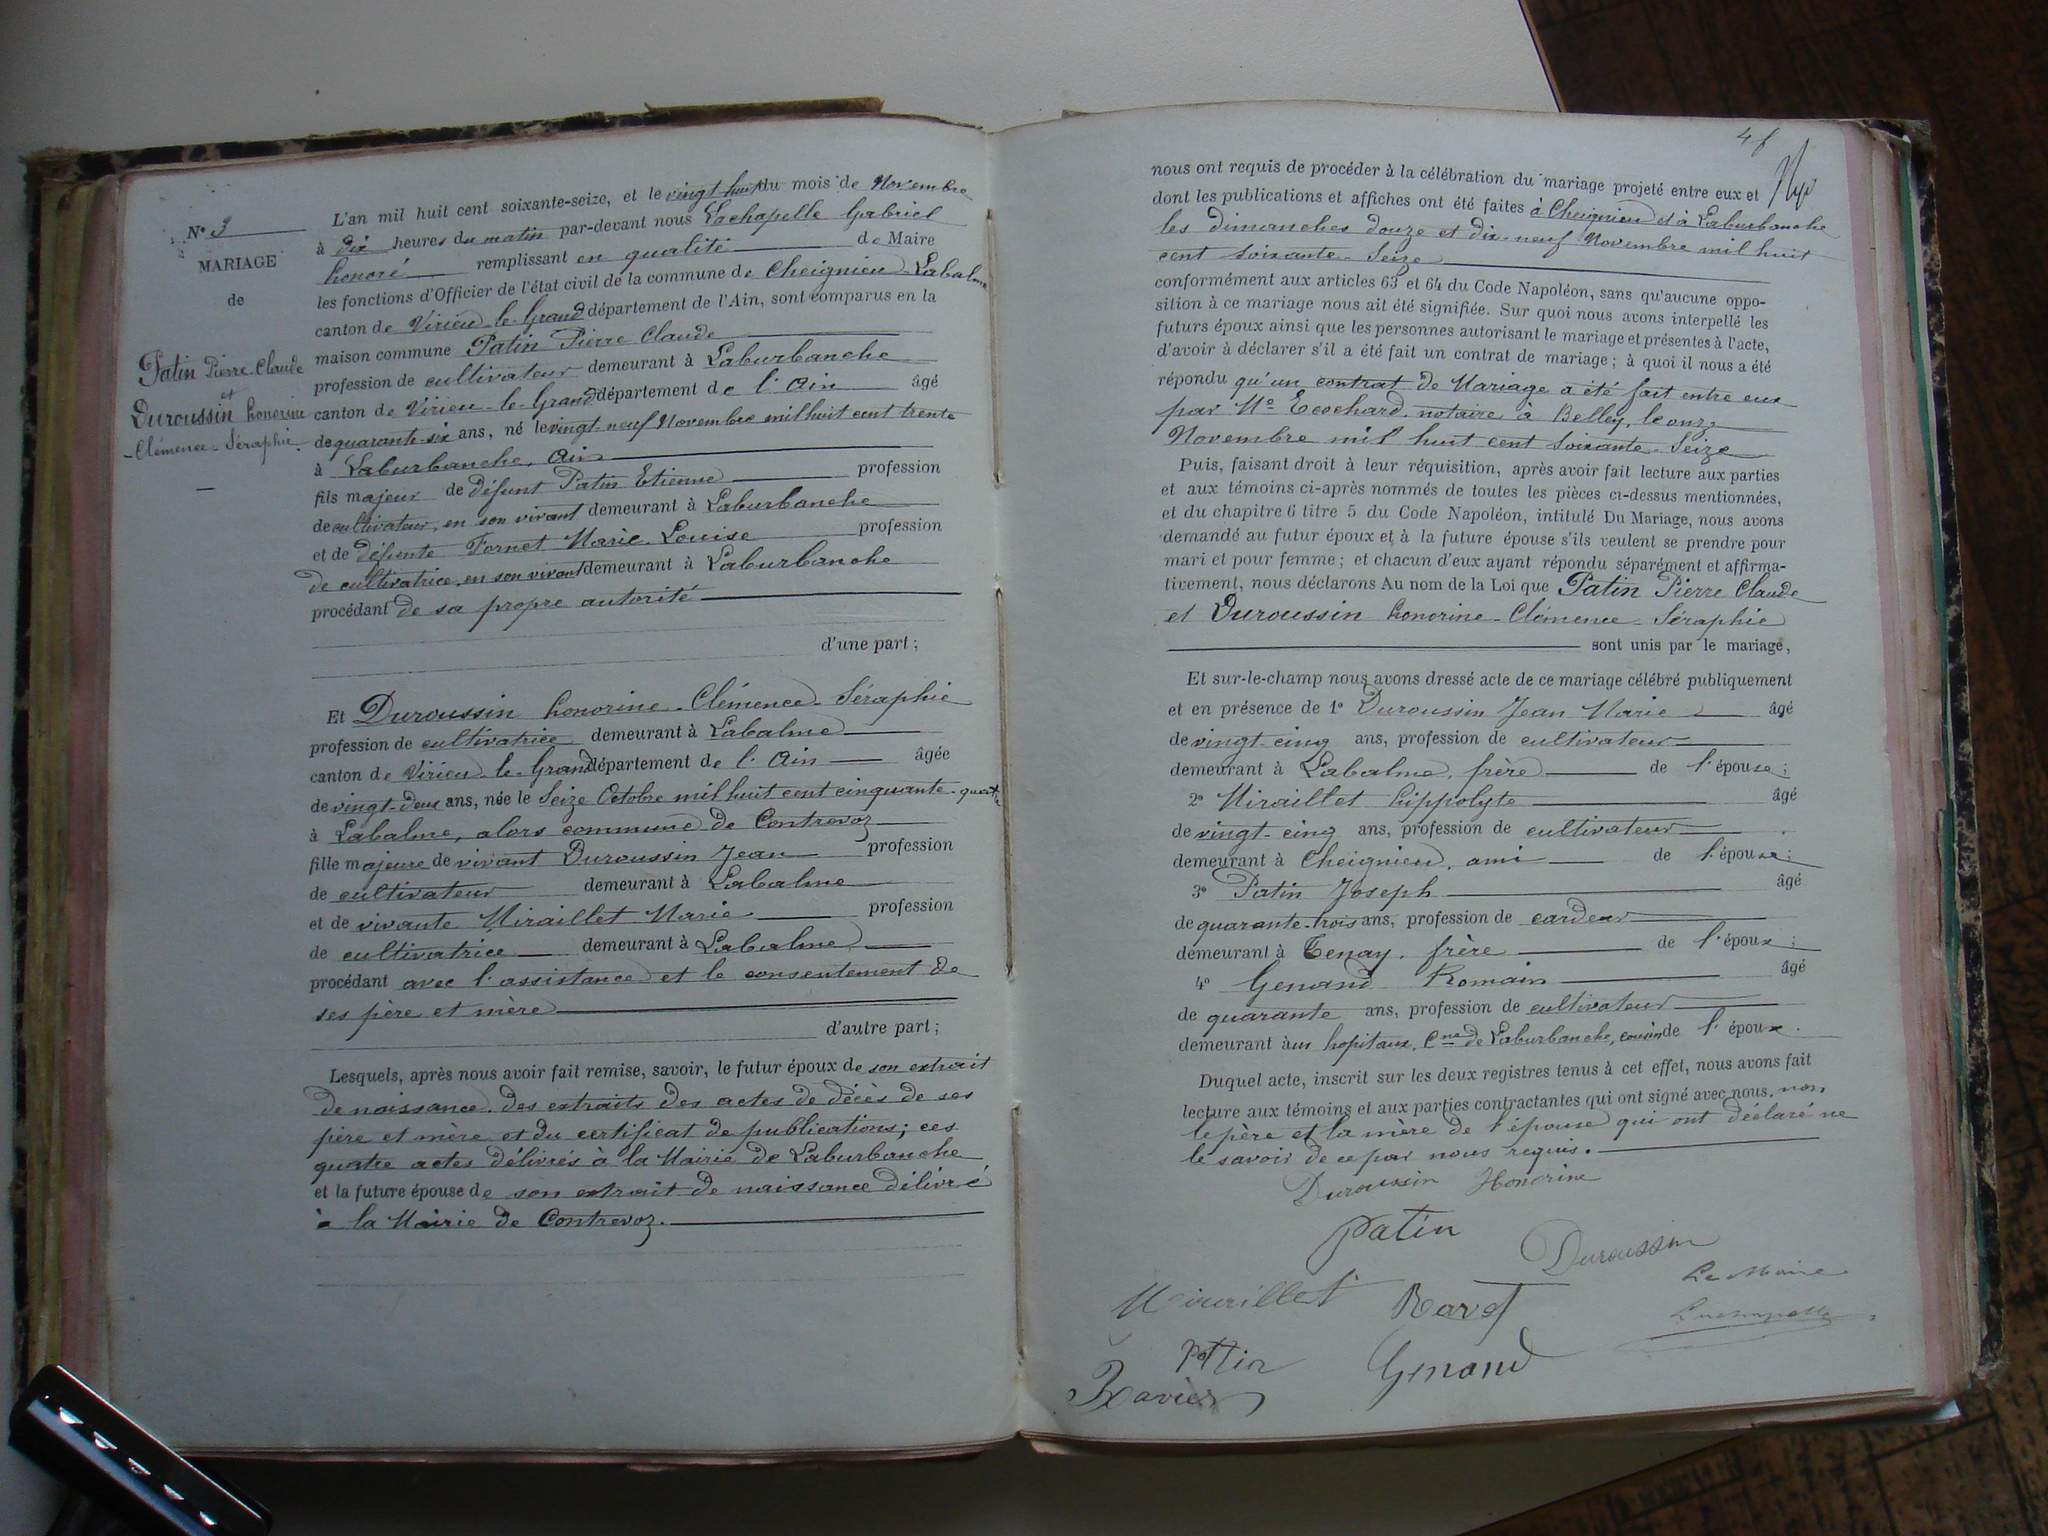 N° 3
MARIAGE
de
Patin Pierre-Claude
et
Duroussin honorine
-Clémence-Séraphie.
L'an mil huit cent soixante-seize, et le vingt-huit du mois de Novembre
à dix heures du matin par-devant nous Lachapelle Gabriel
honoré remplissant en qualité de Maire
les fonctions d'Officier de l'état civil de la commune de Cheignieu-Labalme
canton de Virieu-le-Grand département de l'Ain, sont comparus en la
maison commune Patin Pierre Claude
profession de cultivateur demeurant à Laburbanche
canton de Virieu-le-Grand département de l'Ain âgé
de quarante-six ans, né le vingt-neuf Novembre mil huit cent trente
à Laburbanche, Ain
fils majeur de défunt Patin Etienne profession
de cultivateur, en son vivant demeurant à Laburbanche
et de défunte Fornet Marie Louise profession
de cultivatrice en son vivant demeurant à Laburbanche
procédant de sa propre autorité
d'une part ;
Et Duroussin honorine-Clémence-Séraphie
profession de cultivatrice demeurant à Labalme
canton de Virieu-le-Grand département de l'Ain âgée
de vingt-deux ans, née le Seize Octobre mil huit cent cinquante-quatre
à Labalme, alors commune de Contrevoz
fille majeure de vivant Duroussin Jean profession
de cultivateur demeurant à Labalme
et de vivante Miraillet Marie profession
de cultivatrice demeurant à Labalme
procédant avec l'assistance et le consentement de
ses père et mère
d'autre part ;
Lesquels, après nous avoir fait remise, savoir, le futur époux de son extrait
de naissance, des extraits des actes de décès de ses
père et mère et du certificat de publications; ces
quatre actes délivrés à la Mairie de Laburbanche
et la future épouse de son extrait de naissance délivré
à la Mairie de Contrevoz.
nous ont requis de procéder à la célébration du mariage projeté entre eux et
dont les publications et affiches ont été faites à Cheignieu et à Laburbanche
les dimanches douze et dix-neuf Novembre mil huit
cent soixante-Seize
conformément aux articles 63 et 64 du Code Napoléon, sans qu'aucune oppo-
sition à ce mariage nous ait été signifiée. Sur quoi nous avons interpellé les
futurs époux ainsi que les personnes autorisant le mariage et présentes à l'acte,
d'avoir à déclarer s'il a été fait un contrat de mariage ; à quoi il nous a été
répondu qu'un contrat de Mariage a été fait entre eux
par Me Ecochard, notaire à Belley, le onze
Novembre mil huit cent soixante-Seize
Puis, faisant droit à leur réquisition, après avoir fait lecture aux parties
et aux témoins ci-après nommés de toutes les pièces ci-dessus mentionnées,
et du chapitre 6 titre 5 du Code Napoléon, intitulé Du Mariage, nous avons
demandé au futur époux et à la future épouse s'ils veulent se prendre pour
mari et pour femme ; et chacun d'eux ayant répondu séparément et affirma-
tivement, nous déclarons Au nom de la Loi que Patin Pierre Claude
et Duroussin honorine-Clémence-Séraphie
sont unis par le mariage,
Et sur-le-champ nous avons dressé acte de ce mariage célébré publiquement
et en présence de 1° Duroussin Jean Marie âgé
de vingt-cinq ans, profession de cultivateur
demeurant à Labalme, frère de l'épouse ;
2° Miraillet hippolyte âgé
de vingt-cinq ans, profession de cultivateur
demeurant à Cheignieu, ami de l'épouse ;
3° Patin Joseph âgé
de quarante-trois ans, profession de cardeur
demeurant à Tenay, frère de l'époux ;
4° Genand Romain âgé
de quarante ans, profession de cultivateur
demeurant aux hopitaux, Cne de Laburbanche, cousin de l'époux.
Duquel acte, inscrit sur les deux registres tenus à cet effet, nous avons fait
lecture aux témoins et aux parties contractantes qui ont signé avec nous, non
le père et la mère de l'épouse qui ont déclaré ne
le savoir de ce par nous requis.
Duroussin Honorine
Patin
Duroussin
Le Maire
Miraillet
Lachapelle
Patin
Genand
Ravier